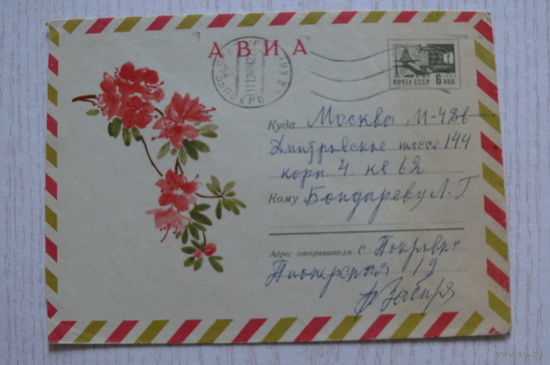 АВИА
ПОЧТА СССР
6 КОП.
Куда Москва М-482
Дмитровское шоссе 144
корп 4. кв 62
Кому Бондареву Л.Г
Адрес отправителя с Покровка
Пионерская 19
ay.by